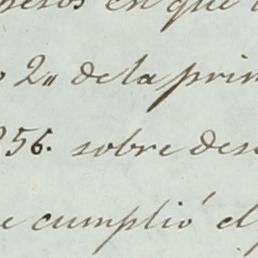 en que
2„ de la prim
856. sobre des
e cumplió el